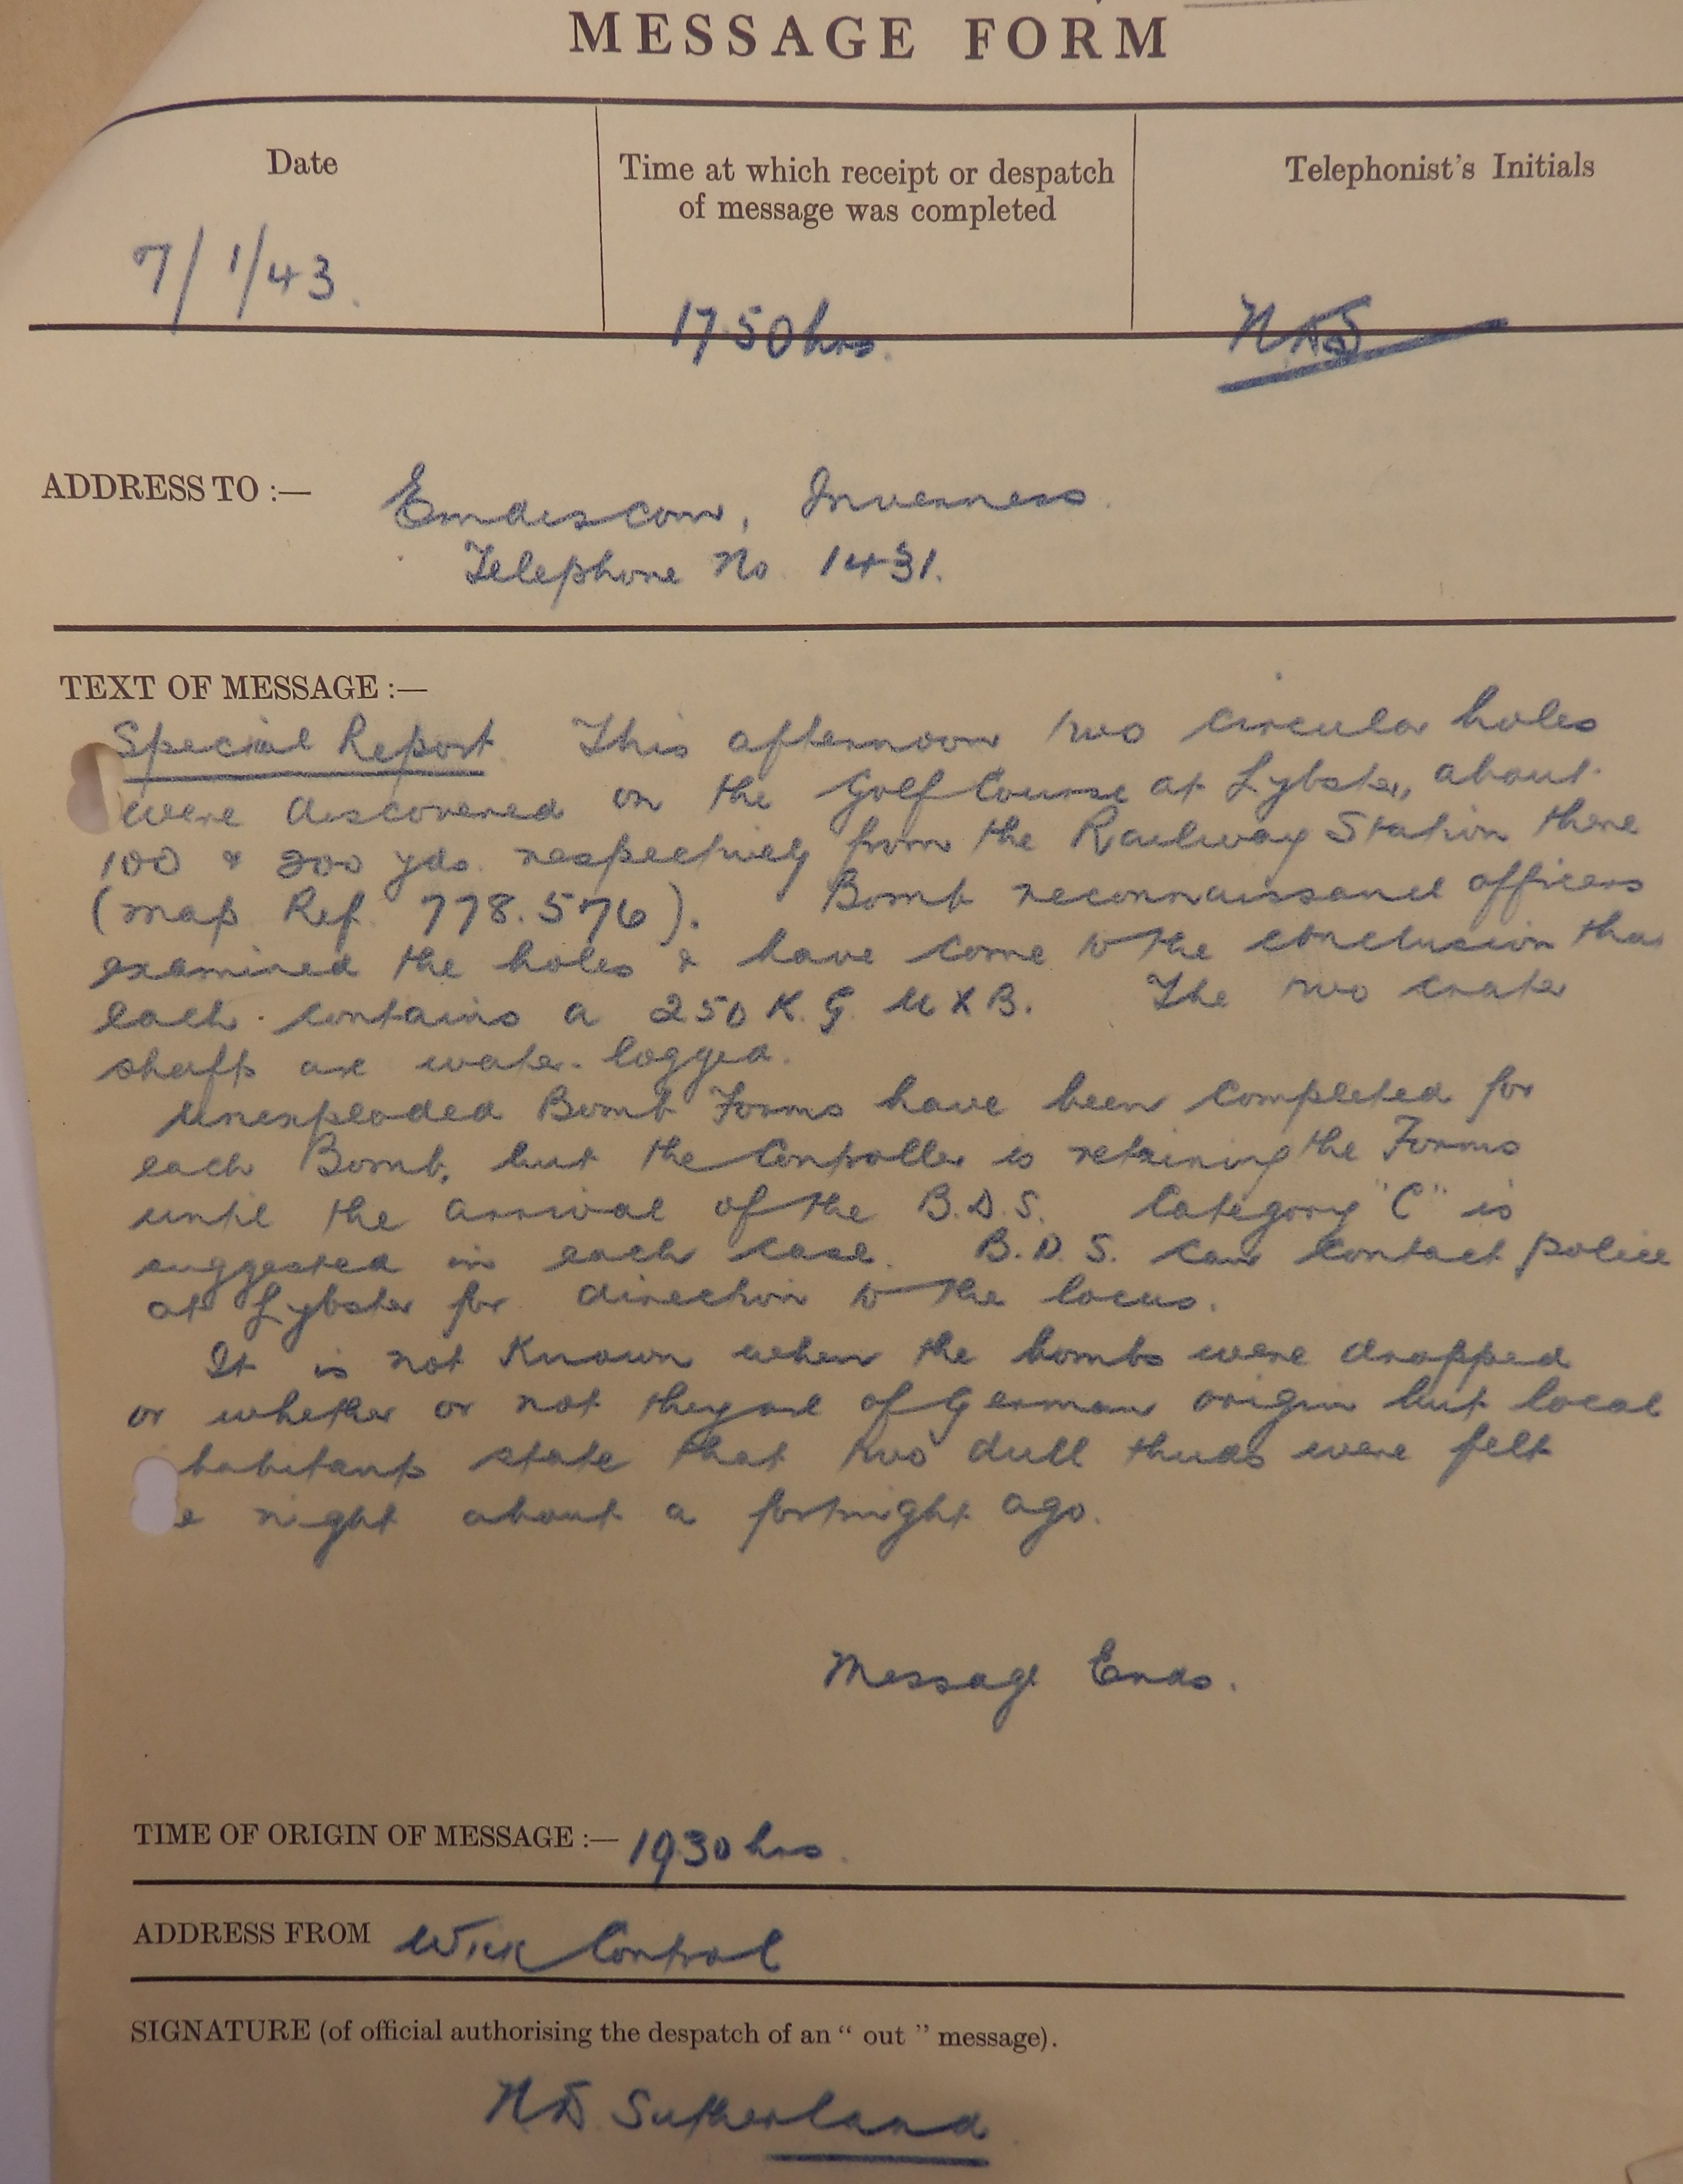 MESSAGE FORM
Date
Time at which receipt or despatch
of message was completed
Telephonist's Initials
7/1/43.
1750 hrs.
ADDRESS TO :—
Emdiscom, Inverness.
Telephone No 1431.
TEXT OF MESSAGE :—
Special Report. This afternoon two circular holes
were discovered on the Golf Course at Lybster, about
100 & 200 yds. respectively from the Railway Station there
(map Ref. 778.576). Bomb reconnaissance officers
examined the holes & have come to the conclusion tha
each contains a 250 K.G. UXB. The two crater
shafts are water-logged.
Unexploded Bomb Forms have been completed for
each Bomb, but the Controller is retaining the Forms
until the arrival of the B.D.S. Category "C" is
suggested in each case. B.D.S. can contact police
at Lybster for direction to the locus.
It is not known when the bombs were dropped
or whether or not they are of German origin but local
habitants state that two dull thuds were felt
e night about a fortnight ago.
Message Ends.
TIME OF ORIGIN OF MESSAGE :— 1930 hrs.
ADDRESS FROM Wick Control
SIGNATURE (of official authorising the despatch of an " out " message).
Sutherland